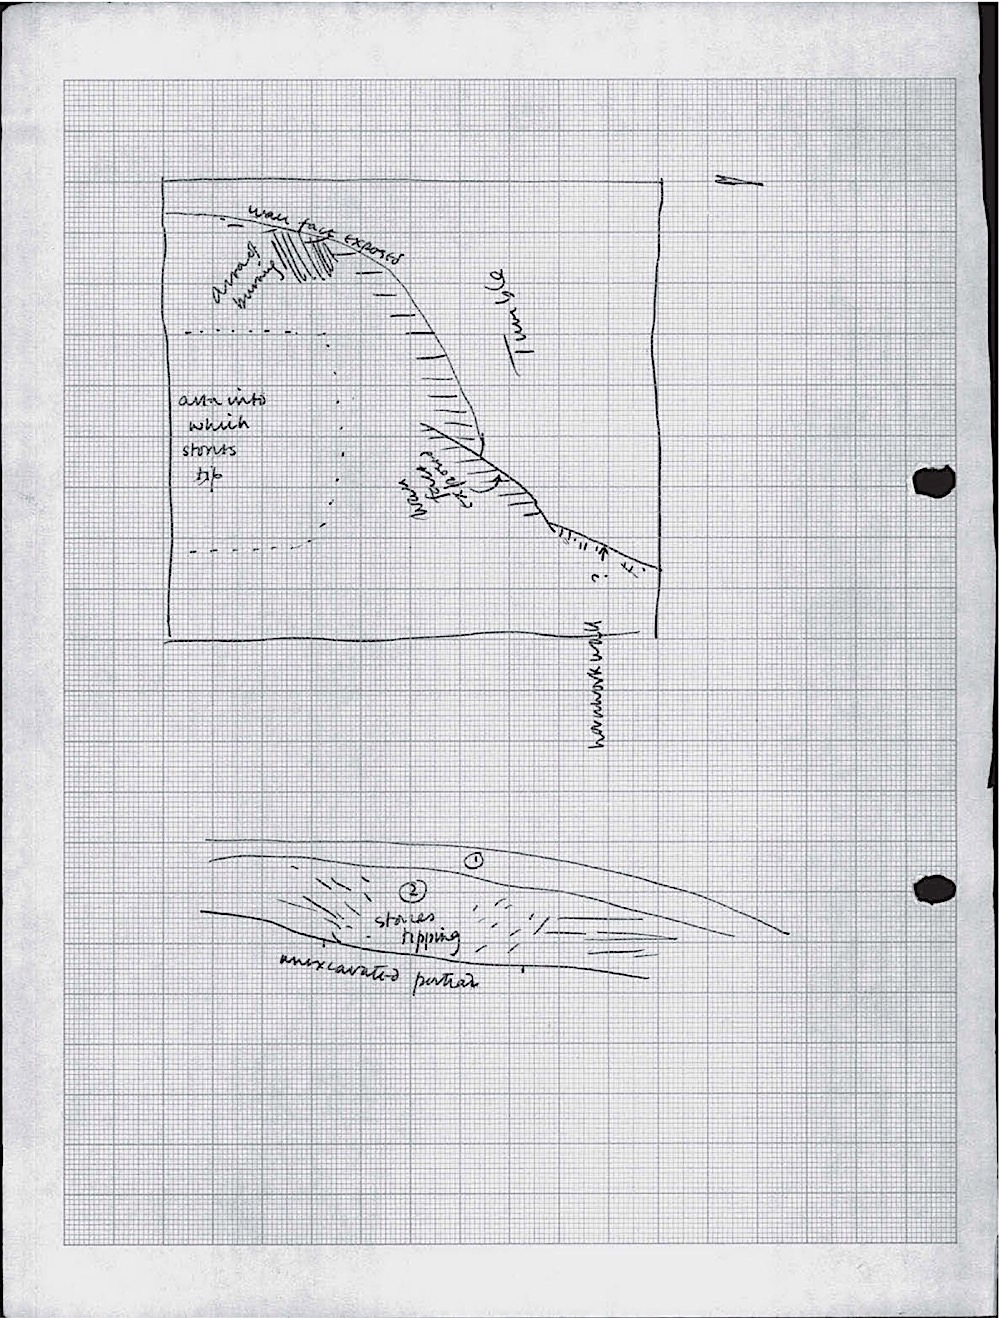 wall face exposed
area of
burning
area into
which
stones
tip
wall
face
exposed
?
hornwork wall
①
②
stones
tipping
unexcavated portion